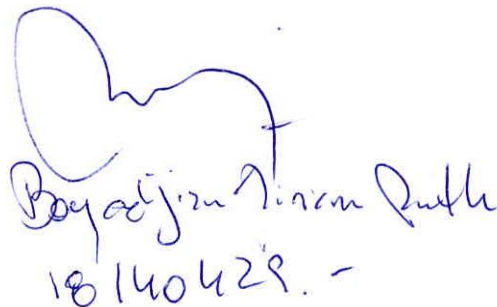 Boyadjian Miriam Ruth
18140429.-